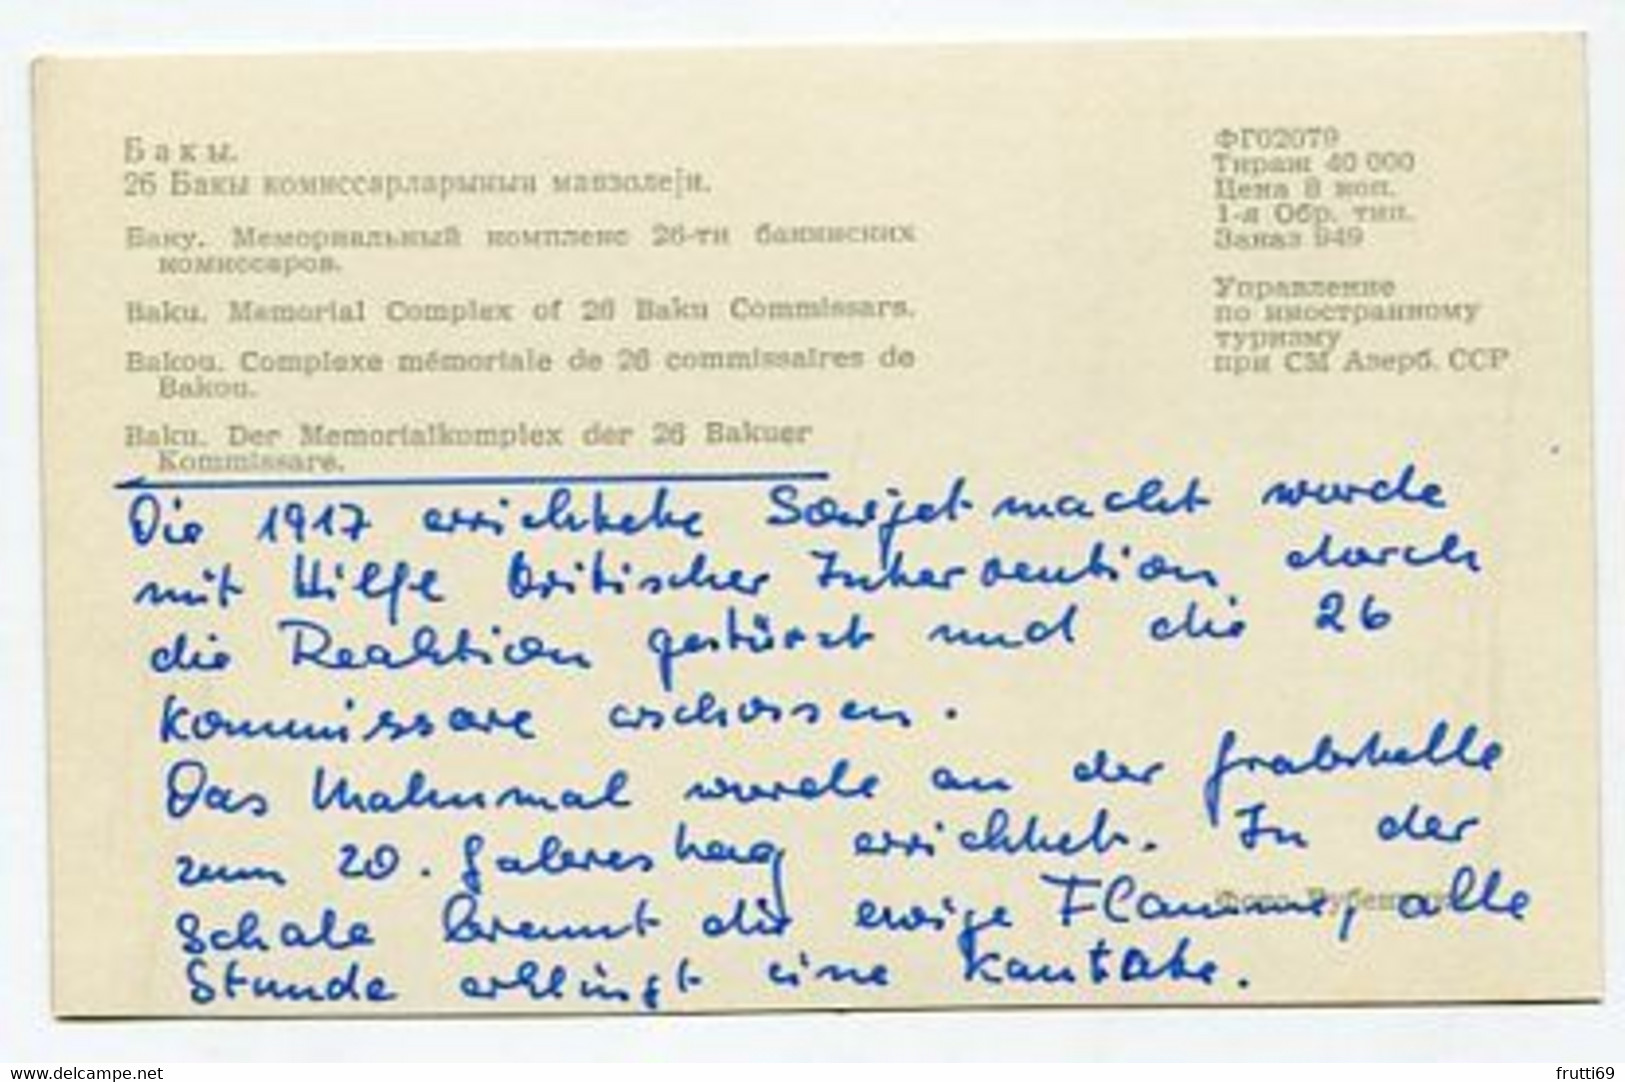 Бакы.
26 Бакы комиссарларынын мавзолеји.
Баку. Мемориальный комплекс 26-ти бакинских
комиссаров.
Baku. Memorial Complex of 26 Baku Commissars.
Bakou. Complexe mémoriale de 26 commissaires de
Bakou.
Baku. Der Memorialkomplex der 26 Bakuer
Kommissare.
ФГ02079
Тираж 40 000
Цена 8 коп.
1-я Обр. тип.
Заказ 949
Управление
по иностранному
туризму
при СМ Азерб. ССР
Die 1917 errichtete Sowjetmacht wurde
mit Hilfe britischer Intervention durch
die Reaktion gestürzt und die 26
Kommissare erschossen.
Das Mahnmal wurde an der Grabstelle
zum 20. Jahrestag errichtet. In der
Schale brennt die ewige Flamme, alle
Stunde erklingt eine Kantate.
Фото
www.delcampe.net
frutti69